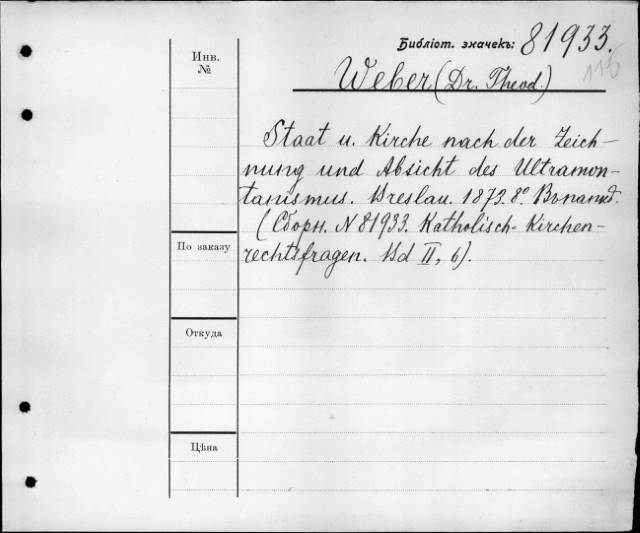 Библіот. значекъ: 81933.
115
Инв.
№
Weber (Dr. Theod.)
Staat u. Kirche nach der Zeich-
nung und Absicht des Ultramon-
tanismus. Breslau. 1873. 8º.
(Сборн. N 81933. Katholisch-Kirchen-
rechtsfragen. Bd II, 6).
По заказу
Откуда
Цѣна